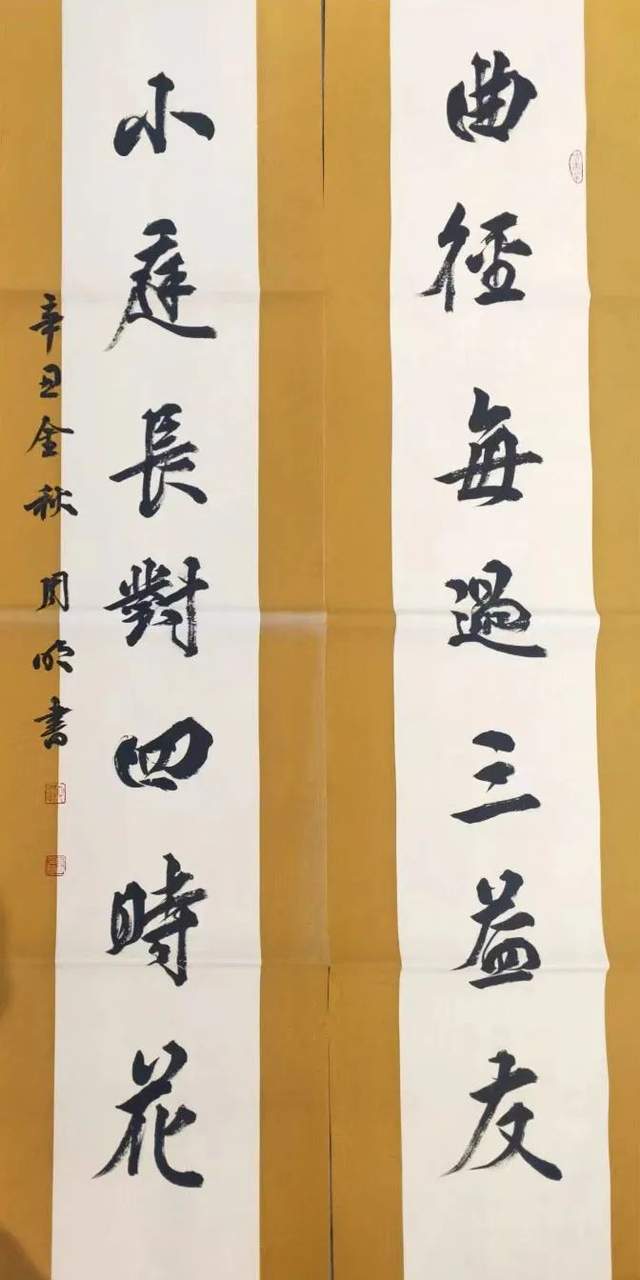 曲徑每過三益友
小庭長對四時花
辛丑金秋周明書